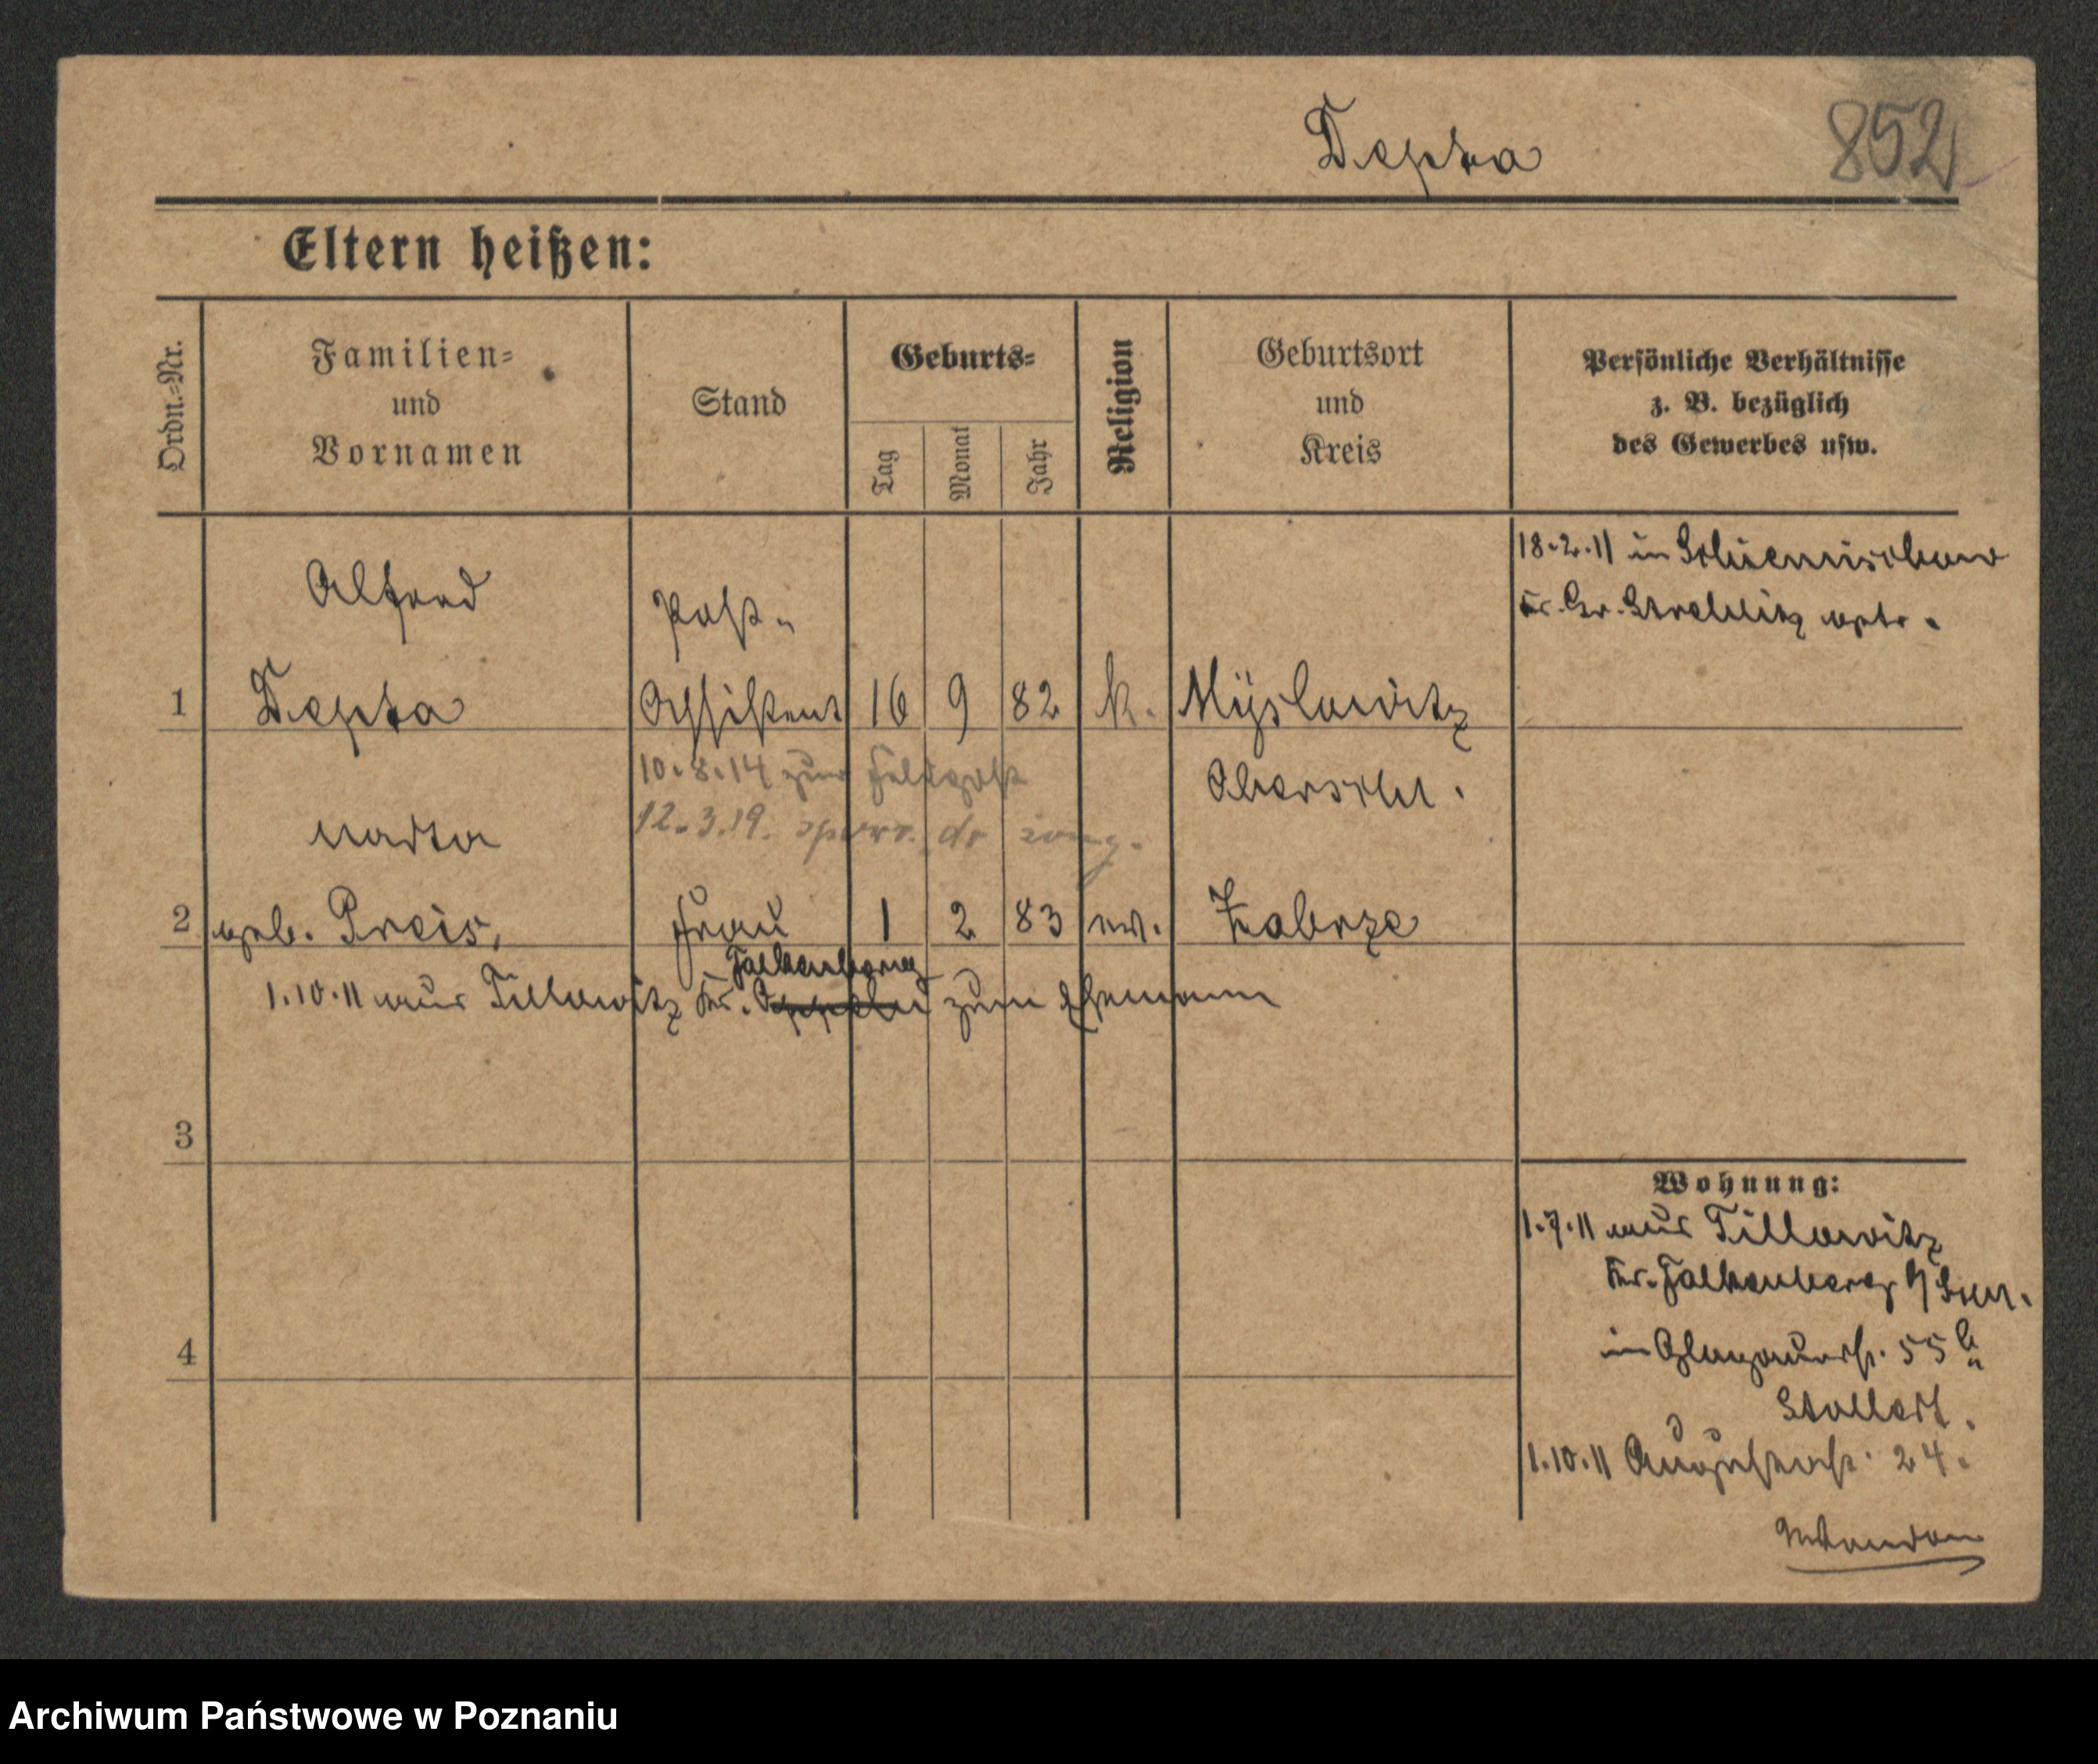 Depta 852
Eltern heißen:
Ordn.-Nr.
Familien-
und
Vornamen
Stand
Geburts-
Tag
Monat
Jahr
Religion
Geburtsort
und
Kreis
Persönliche Verhältnisse
z. B. bezüglich
des Gewerbes usw.
18.2.11 in Schiemischow
Kr. Gr. Strehlitz
Alfred
Post-
1 Depta Assistent 16 9 82 k. Myslowitz
10.8.14 zur Feldpost
Oberschl.
12.3.19.
2 geb. Preis, Frau 1 2 83 Zabrze
Falkenberg
1.10.11 aus Tillowitz Kr. Oppeln zum Ehemann
3
4
Wohnung:
1.7.11 aus Tillowitz
Kr. Falkenberg
in Glogauerstr. 55
1.10.11 Augustastr. 24.
Archiwum Państwowe w Poznaniu